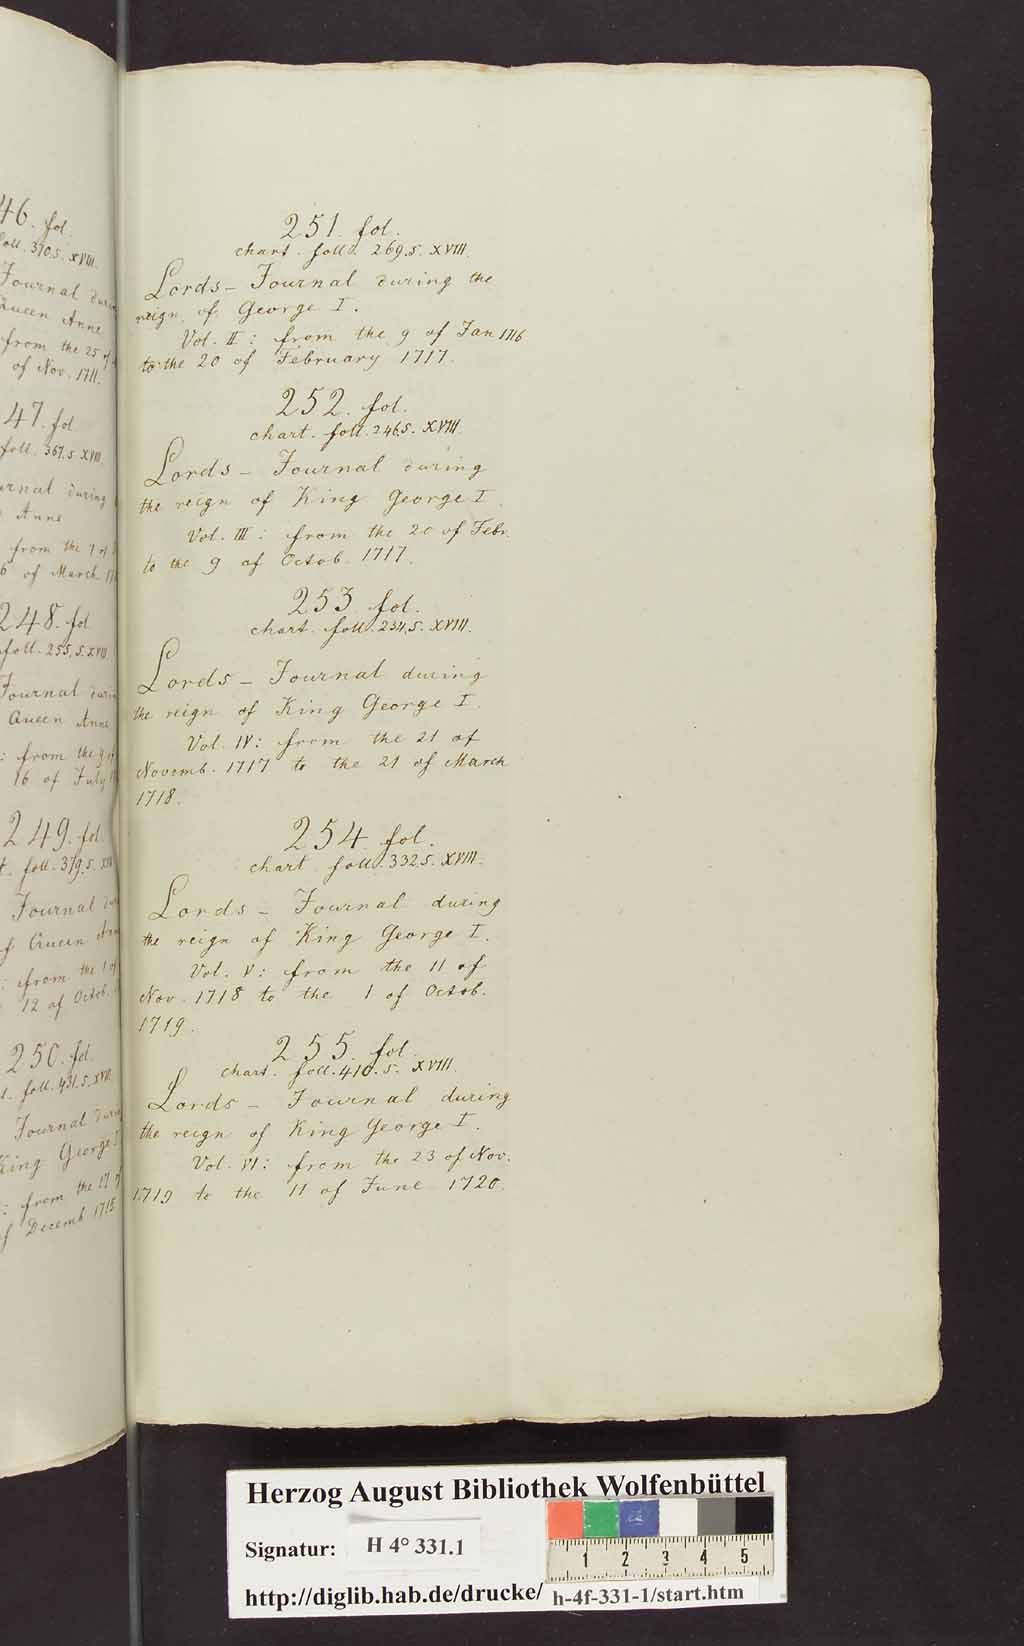 46. fol.
foll. 370. s. XVIII.
Journal
Queen Anne
from the 25 of
of Nov. 1711.
47. fol
foll. 367. s XVIII.
during
Anne
from the 7 of
6 of March
248. fol
foll. 255. s. XVIII.
Journal
Queen Anne
: from the 9 of
16 of July
249. fol.
foll. 379. s.
Journal
of Queen
: from the 1 of
12 of Octob.
250. fol.
foll. 431. s. XVIII.
Journal
King George
: from the 17 of
of Decemb 1715
251. fol.
chart. foll. 269. s. XVIII.
Lords - Journal during the
reign of George I.
Vol. II: from the 9 of Jan 1716
to the 20 of February 1717.
252. fol.
chart. foll. 246. s. XVIII.
Lords - Journal during
the reign of King George I.
Vol. III: from the 20 of Febr.
to the 9 of Octob. 1717.
253. fol.
chart. foll. 234. s. XVIII.
Lords - Journal during
the reign of King George I.
Vol. IV: from the 21 of
Novemb. 1717 to the 21 of March
1718.
254. fol.
chart foll. 332. s. XVIII.
Lords - Journal during
the reign of King George I.
Vol. V: from the 11 of
Nov. 1718 to the 1 of Octob.
1719.
255. fol.
chart. foll. 410. s. XVIII.
Lords - Journal during
the reign of King George I.
Vol. VI: from the 23 of Nov.
1719 to the 11 of June 1720.
Herzog August Bibliothek Wolfenbüttel
Signatur: H 4° 331.1
1 2 3 4 5
http://diglib.hab.de/drucke/ h-4f-331-1/start.htm